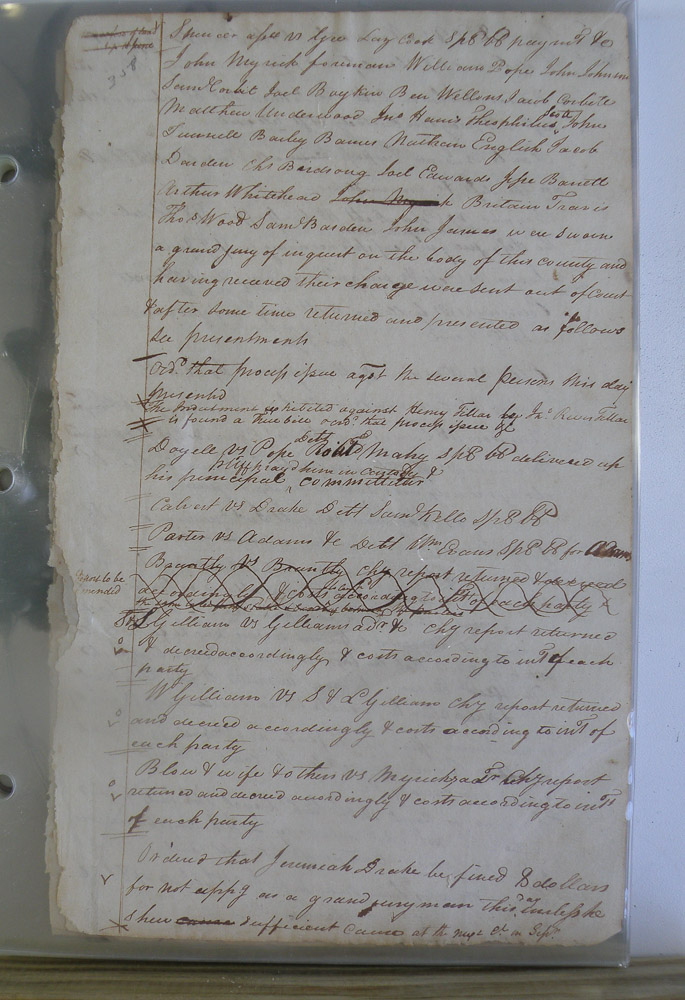 Spencer assee vs Geo Lay Cook Sp8 bb paymt &c
John Myrick foreman William Pope John Johnson
Saml Corbit Joel Boykin Ben Wellons Jacob Corbitt
Matthew Underwood Jno Harris Theophilus Scott John
Tunnell Bailey Barnes Nathan English Jacob
Darden Chs Birdsong Joel Edwards Jesse Barrett
Arthur Whitehead John Myrick Britain Travis
Thos Wood Saml Barden John James were sworn
a grand jury of inquest on the body of this county and
having received their charge were sent out of Court
& after some time returned and presented as follows
see presentments
Ord. that process issue agst the several persons this day
presented
The Indictment exhibited against Henry Tillar by Jno Rives Tillar
is found a true bill ord. that process issue &c
Doyell vs Pope Debt Robt Mabry Sp8 bb delivered up
his principal pltff pray'd him in custody & committitur
Calvert vs Drake Debt Saml Kello Sp8 bb
Porter vs Adams &c Debt Wm Evans Sp8 bb for Adams
Brantly vs Brantly chy report returned & decreed
accordingly & costs according to intt of each party &
Gilliam vs Gilliams adr &c chy report returned
& decreed accordingly & costs according to intt of each
party
W Gilliam vs S & L Gilliam chy report returned
and decreed accordingly & costs according to intt of
each party
Blow & wife & others vs Myrick adr chy report
returned and decreed accordingly & costs according to intt
of each party
Ordered that Jeremiah Drake be fined 8 dollars
for not appg as a grand juryman this day Unless he
shew cause sufficient cause at the next Ct in Sept.